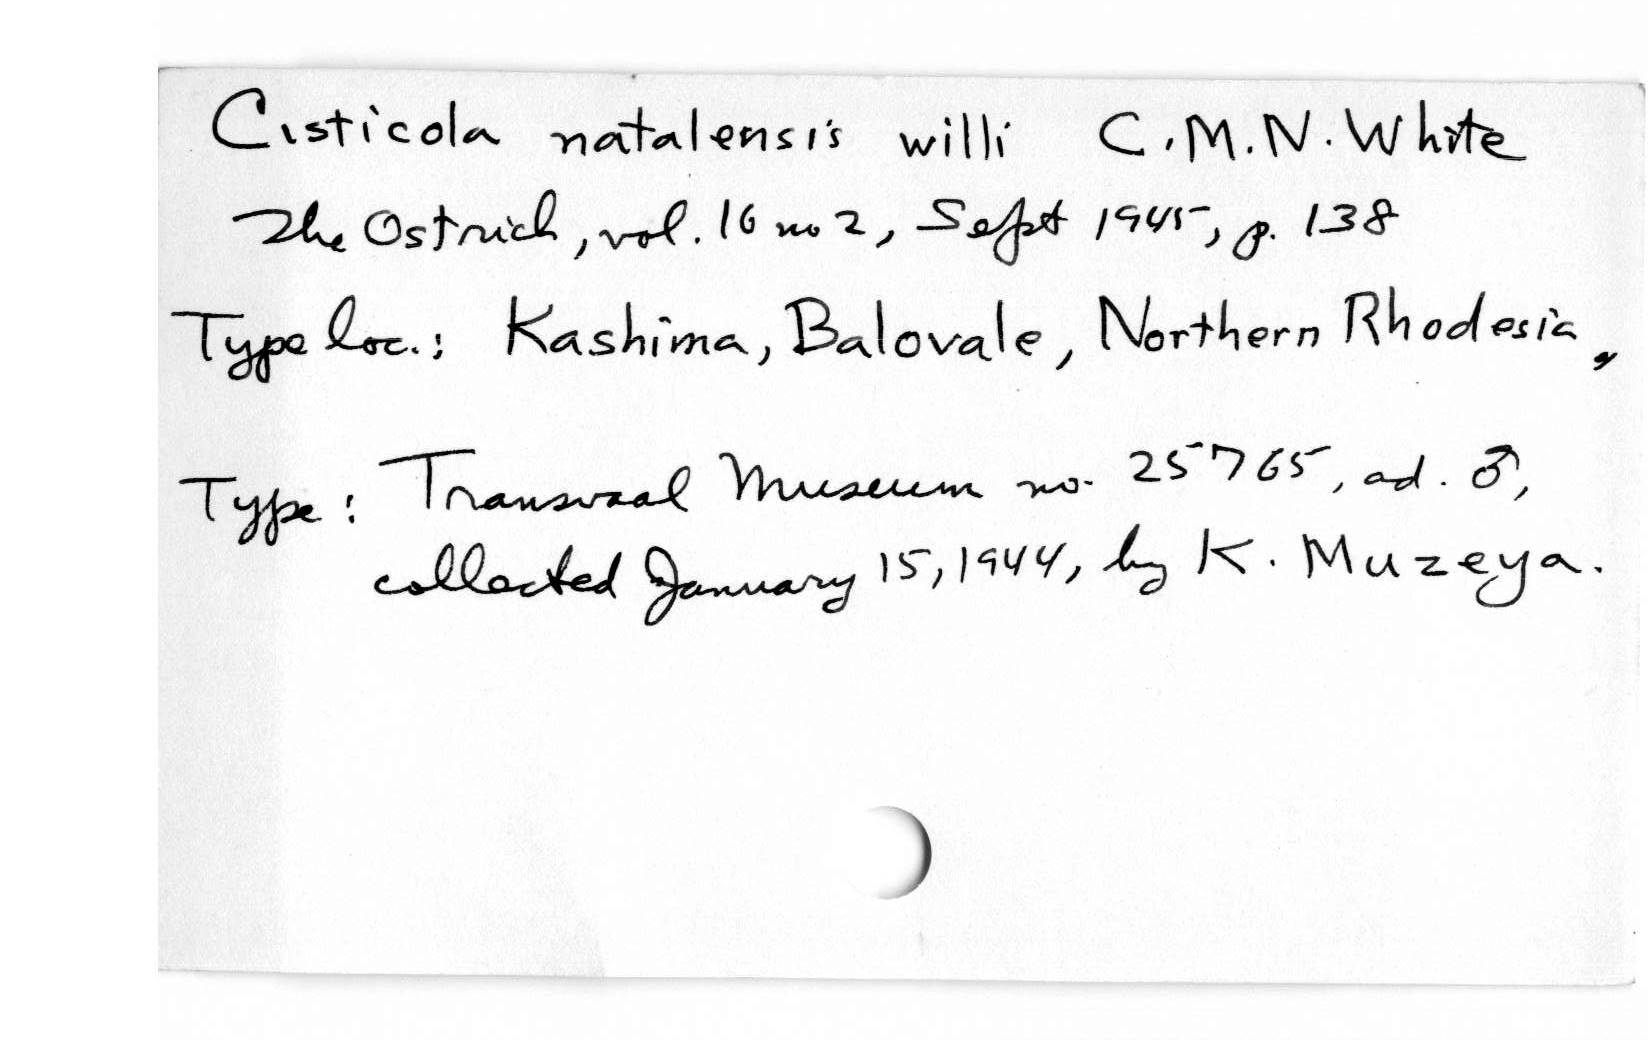 Cisticola natalensis willi C.M.N. White
The Ostrich, vol. 16 no 2, Sept 1945, p. 138
Type loc.: Kashima, Balovale, Northern Rhodesia,
Type: Transvaal Museum no. 25765, ad. ♂,
collected January 15, 1944, by K. Muzeya.